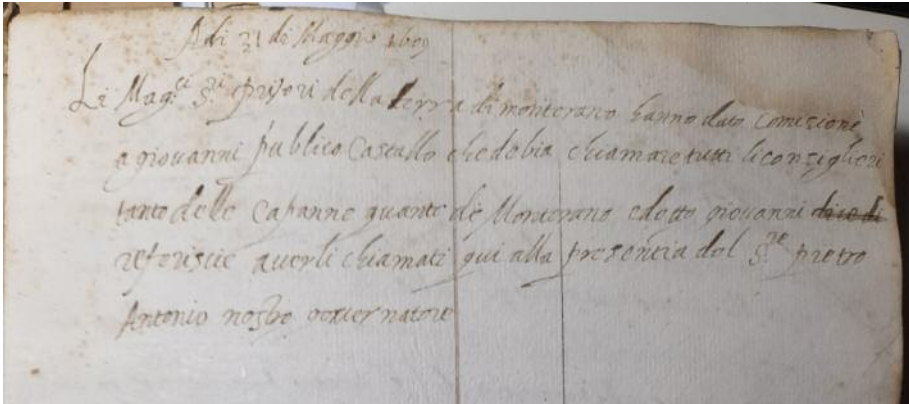 Adi 21 di Maggio 1609
Li Mag.ci S.ri priori della terra di monterano hanno dato comisione
a giovanni publico Castallo che debia chiamare tutti li consiglieri
tanto delle Capanne quanto de Monterano e detto giovanni dice di
referiscie averli chiamati qui alla presentia del S.re pietro
Antonio nostro governatore